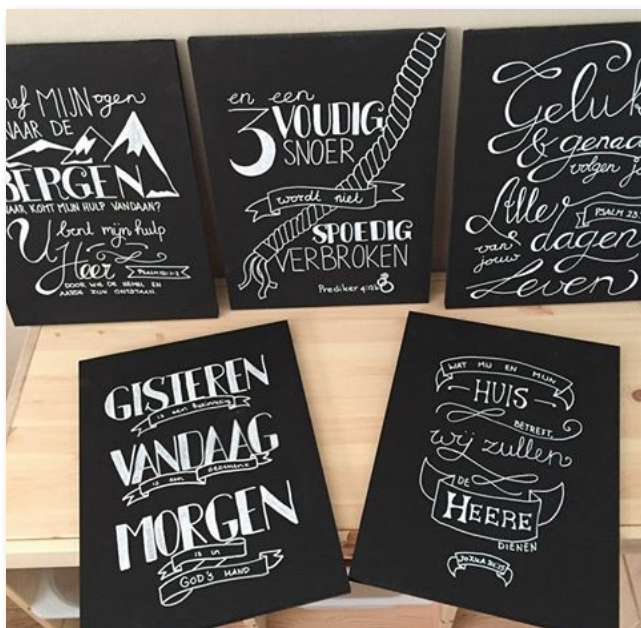 hef MIJN ogen
NAAR DE
BERGEN
WAAR KOMT MIJN HULP VANDAAN?
U bent mijn hulp
Heer
PSALM 121:1-2
DOOR WIE DE HEMEL EN
AARDE ZIJN ONTSTAAN.
en een
3 VOUDIG
SNOER
wordt niet
SPOEDIG
VERBROKEN
Prediker 4:12b
Geluk
& genade
volgen je
Alle
PSALM 23:
van dagen
jouw
Leven
GISTEREN
is een herinnering
VANDAAG
IS EEN GESCHENK
MORGEN
IS IN
GOD'S HAND
WAT MIJ EN MIJN
HUIS
BETREFT,
wij zullen
DE
HEERE
DIENEN
JOZUA 24:15